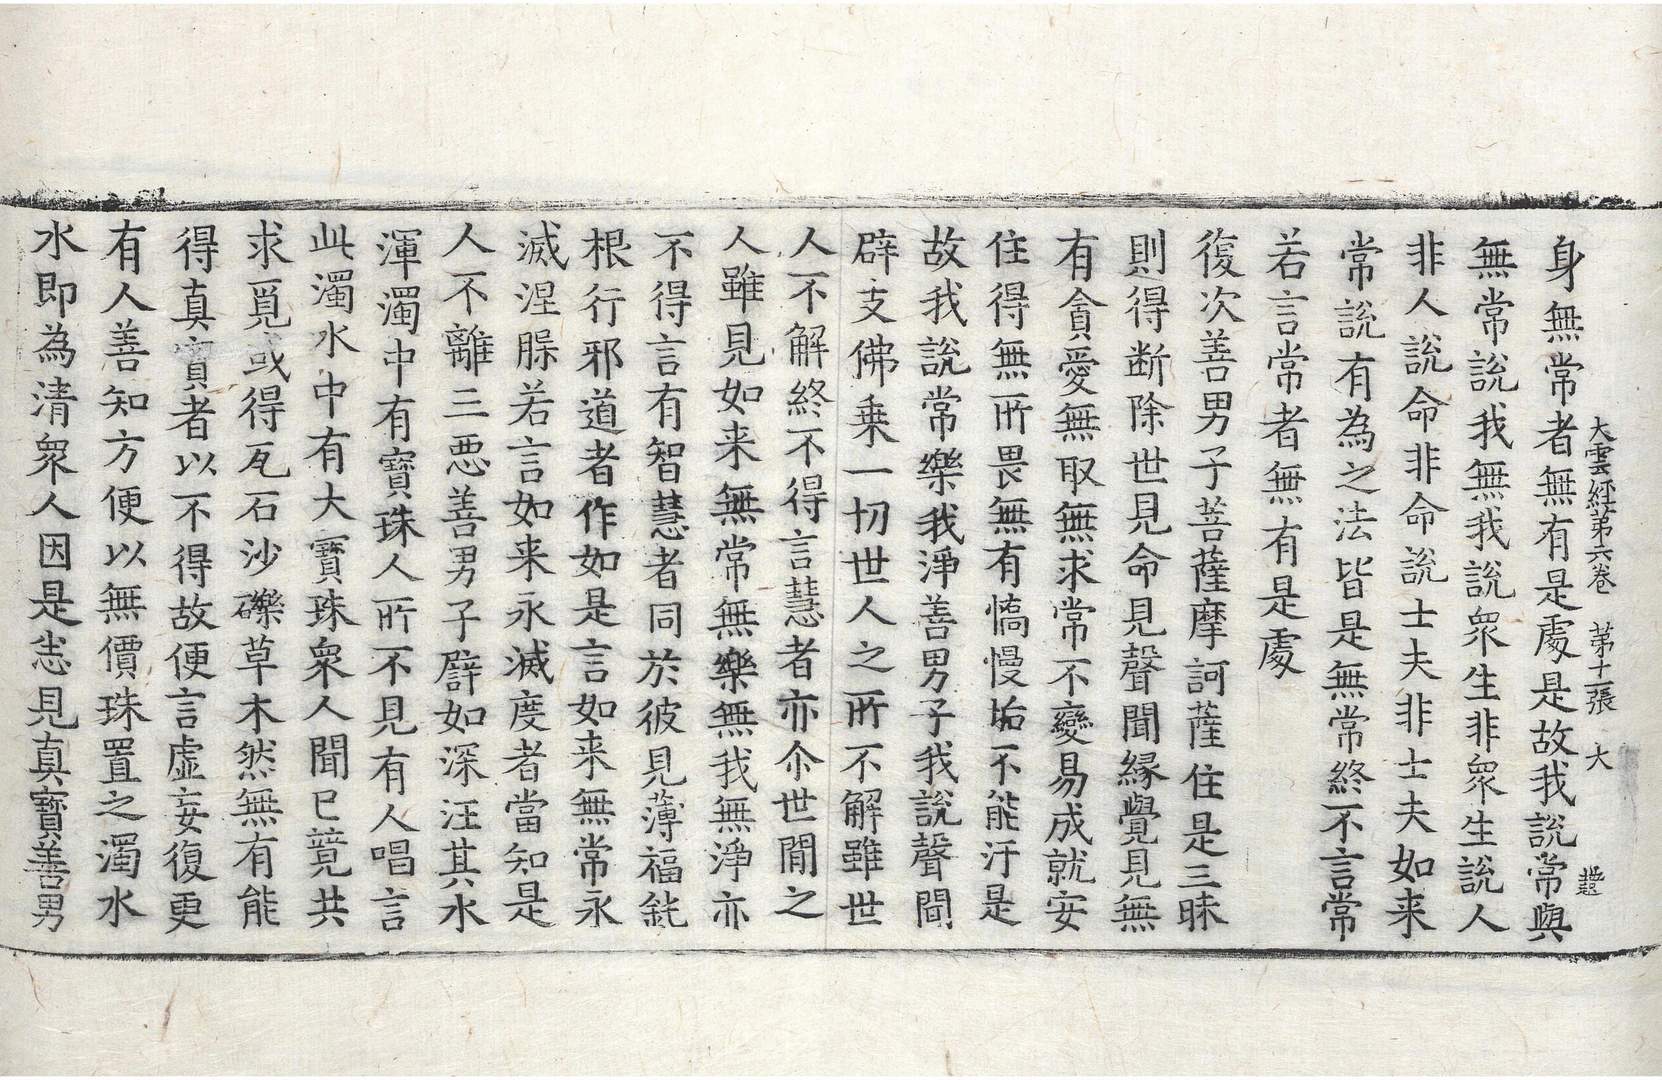 大雲經第六卷 第十一張 大
身無常者無有是處是故我說常與
無常說我無我說衆生非衆生說人
非人說命非命說士夫非士夫如来
常說有為之法皆是無常終不言常
若言常者無有是處
復次善男子菩薩摩訶薩住是三昧
則得断除世見命見聲聞緣覺見無
有貪愛無取無求常不變易成就安
住得無所畏無有憍慢垢不能汙是
故我說常樂我淨善男子我說聲聞
辟支佛乗一切世人之所不解雖世
人不解終不得言慧者亦尒世間之
人雖見如来無常無樂無我無淨亦
不得言有智慧者同於彼見薄福鈍
根行邪道者作如是言如来無常永
滅涅槃若言如来永滅度者當知是
人不離三惡善男子譬如深汪其水
渾濁中有寶珠人所不見有人唱言
此濁水中有大寶珠衆人聞已競共
求覓或得瓦石沙礫草木然無有能
得真寶者以不得故便言虛妄復更
有人善知方便以無價珠置之濁水
水即為清衆人因是悉見真寶善男